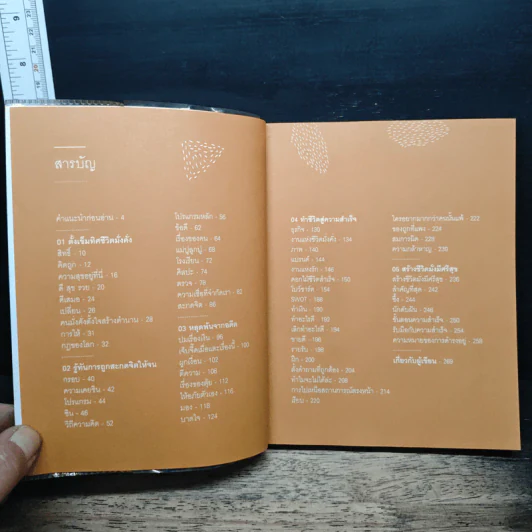 สารบัญ
คำแนะนำก่อนอ่าน - 4
01 ตั้งเข็มทิศชีวิตมั่งคั่ง
สิทธิ์ - 10
คิดถูก - 12
ความสุขอยู่ที่นี่ - 18
ดี สุข รวย - 20
ดีเสมอ - 24
เปลี่ยน - 28
คนมั่งคั่งตั้งใจสร้างตำนาน - 28
การให้ - 31
กฎของโลก - 32
02 รู้ทันการถูกสะกดจิตให้จน
กรอบ - 40
ความเคยชิน - 42
โปรแกรม - 44
ชิน - 46
วิถีความคิด - 52
โปรแกรมหลัก - 56
ข้อดี - 62
เรื่องของคน - 64
แม่ปูลูกปู - 69
โรงเรียน - 72
ติดปะ - 74
ตรวจ - 78
ความเชื่อที่จำกัดเรา - 82
สะกาดจิต - 88
03 หลุดพ้นจากอดีต
ปมเรื่องเงิน - 96
เจ็บจี๊ดเมื่อเจอเรื่องนี้ - 100
ผูกเงื่อน - 102
ตีความ - 108
เรื่องของตุ้ย - 112
ให้อภัยตัวเอง - 116
มอง - 118
บาดใจ - 124
04 ทำชีวิตสู่ความสำเร็จ
ธุรกิจ - 130
งานแห่งชีวิตมั่งคั่ง - 134
ภาพ - 140
แบรนด์ - 144
งานแห่งรัก - 146
ทำเงิน - 190
ทำอะไรดี - 192
เลิกทำอะไรดี - 194
ขายดี - 196
งานขับ - 199
ฝึก - 200
ตั้งคำถามที่ถูกต้อง - 204
ทำไมจะไม่ได้ล่ะ - 208
เรียบ - 220
ใครอยากมากกว่าคนนั้นแพ้ - 222
ของถูกที่แพง - 224
ธนาการผิด - 228
ความกล้าหาญ - 230
05 สร้างชีวิตมั่งมีศรีสุข
สร้างชีวิตมั่งมีศรีสุข - 238
สำคัญที่สุด - 242
ซึ้ง - 244
นักสืบฝัน - 246
ขั้นตอนความสำเร็จ - 250
รับมือกับความสำเร็จ - 254
ความหมายของการค้ารวยสุข - 258
เกี่ยวกับผู้เขียน - 269